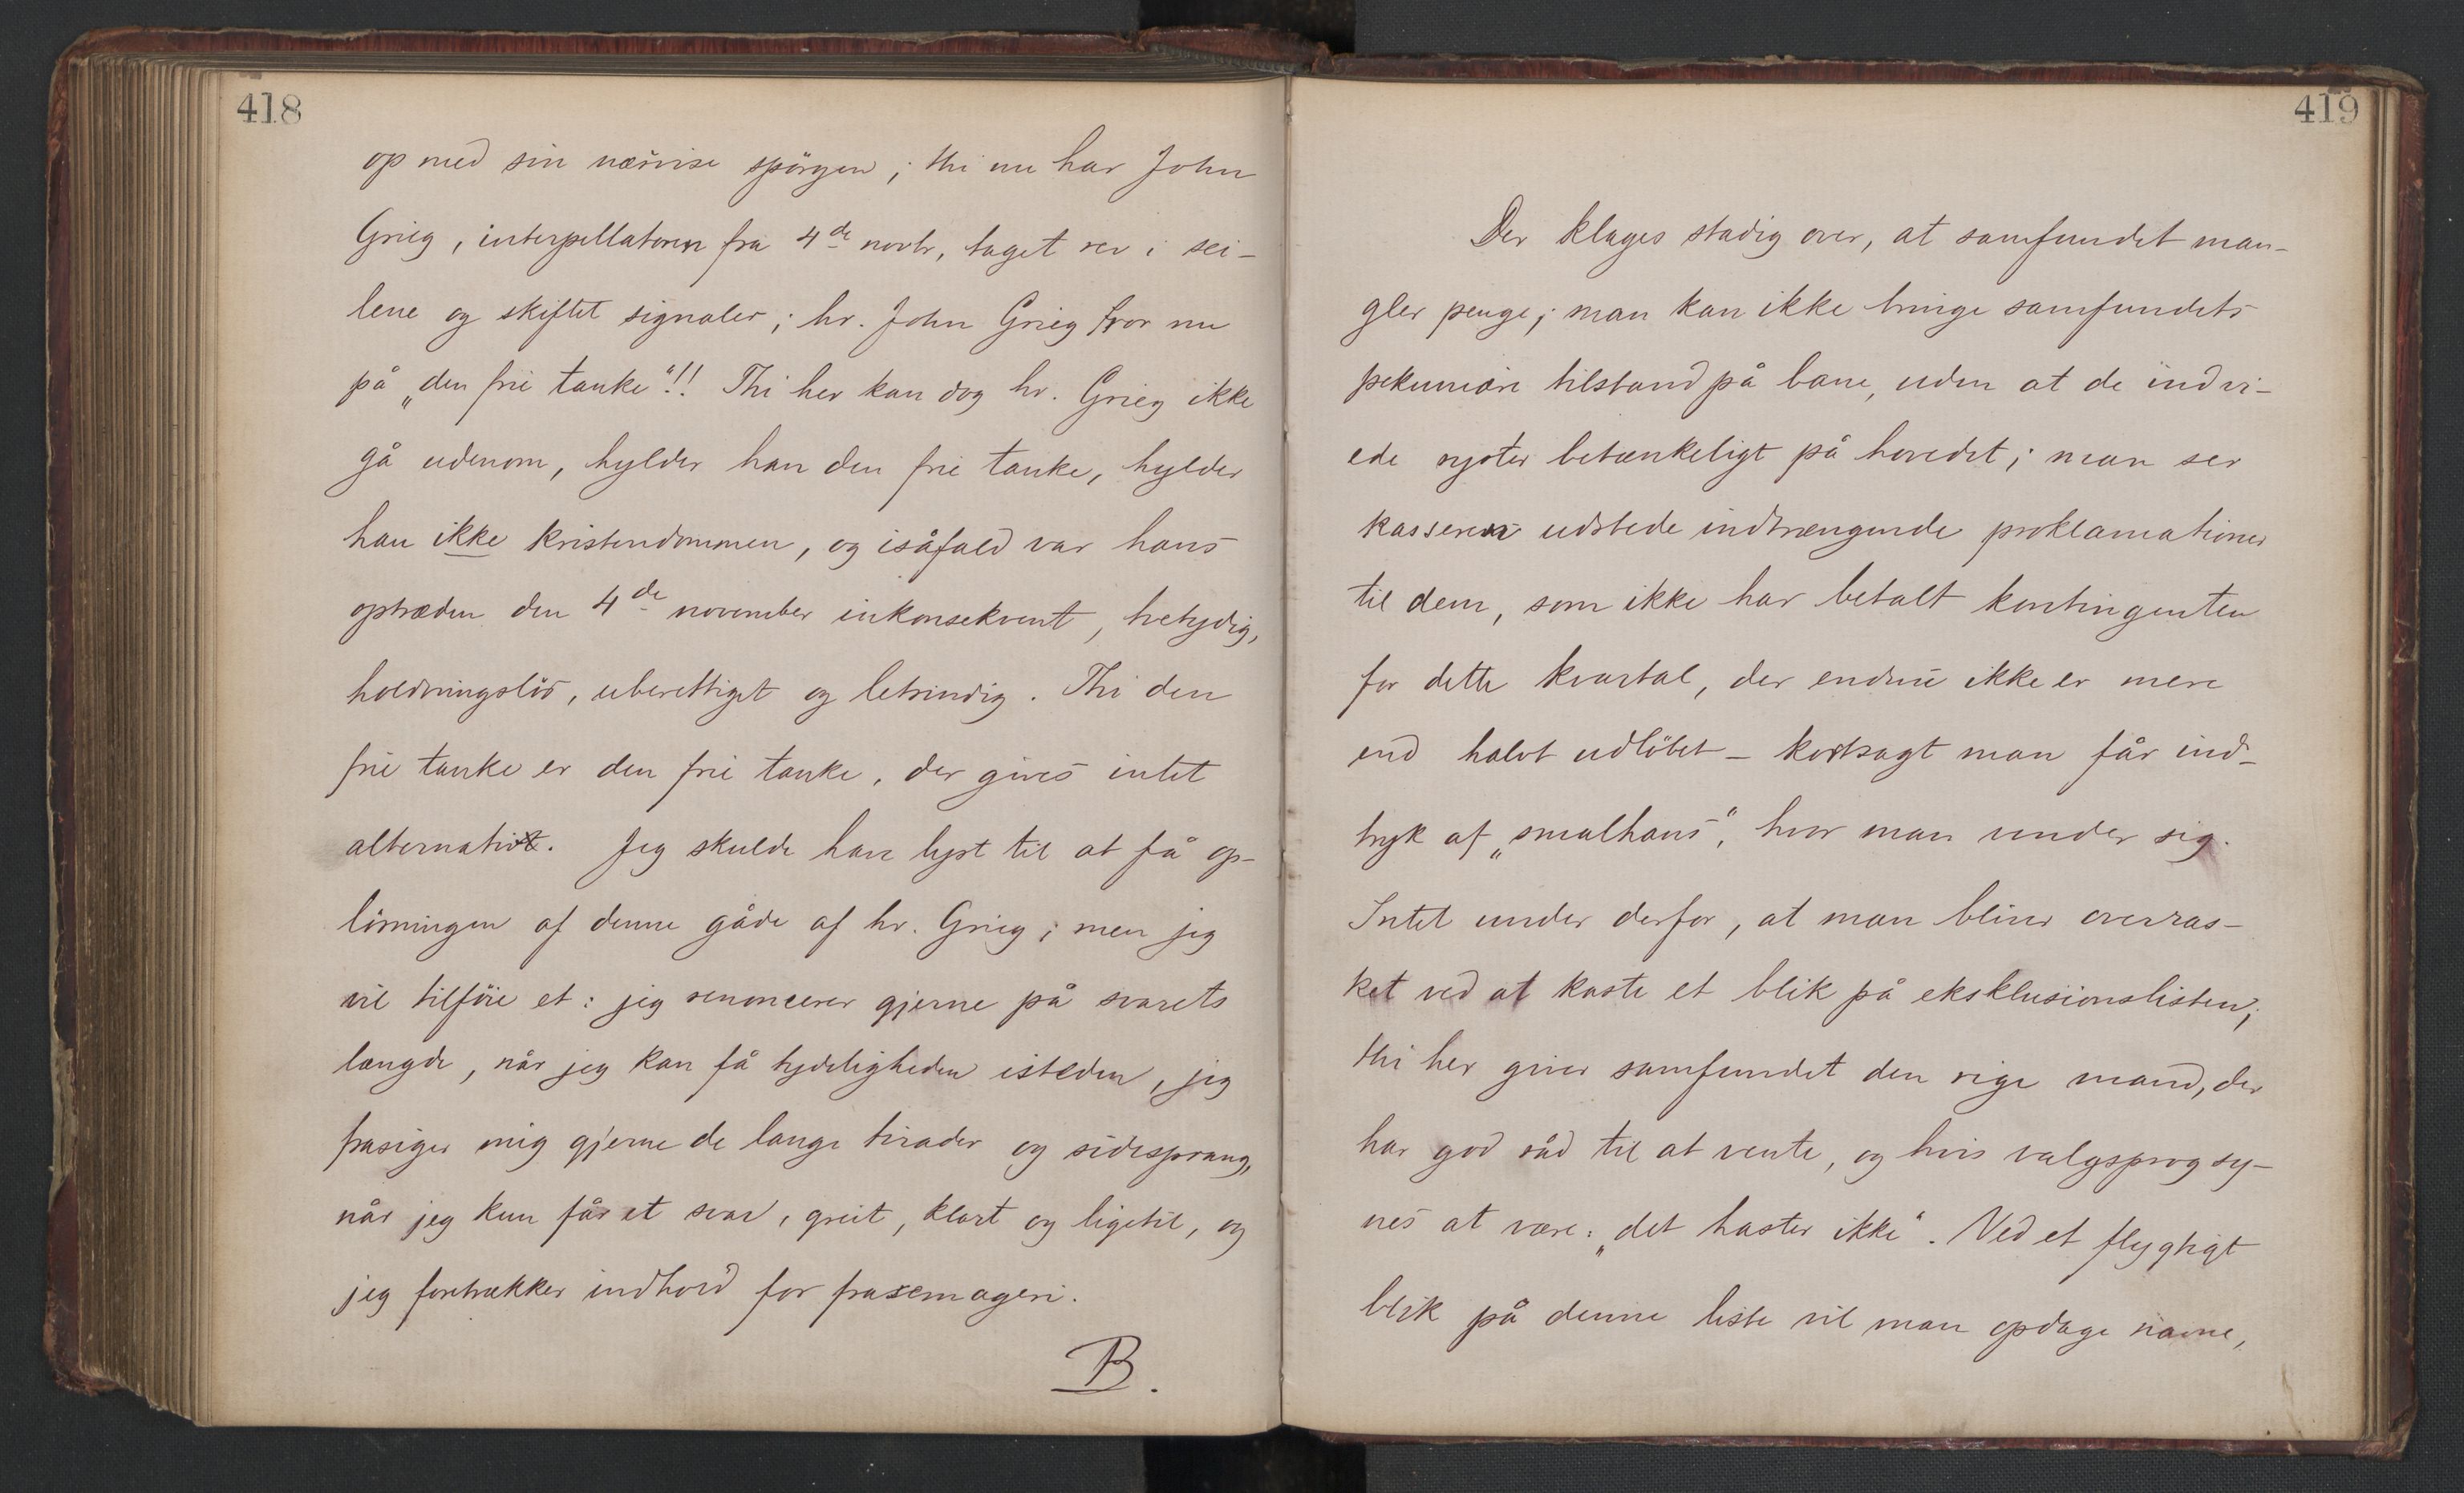 418
op med sin næsvise spørgen; thi nu har John
Grieg, interpellatoren fra 4de novbr, taget rev i sei-
lene og skiftet signaler; hr. John Grieg tror nu
på „den frie tanke“!! Thi her kan dog hr. Grieg ikke
gå udenom, hylder han den frie tanke, hylder
han ikke kristendommen, og isåfald var hans
optræden den 4de november inkonsekvent, tvetydig,
holdningsløs, uberettiget og letsindig. Thi den
frie tanke er den frie tanke, der gives intet
alternativt. Jeg skulde have lyst til at få op-
løsningen af denne gåde af hr. Grieg; men jeg
vil tilføie et: jeg renoncerer gjerne på svarets
længde, når jeg kan få tydeligheden isteden, jeg
frasiger mig gjerne de lange tirader og sidesprang,
når jeg kun får et svar, greit, klart og ligetil, og
jeg foretrækker indhold for frasemageri.
B.
419
Der klages stadig over, at samfundet man-
gler penge; man kan ikke bringe samfundets
pekuniære tilstand på bane, uden at de indvi-
ede ryster betænkeligt på hovedet; man ser
kasseren udstede indtrængende proklamationer
til dem, som ikke har betalt kontingenten
for dette kvartal, der endnu ikke er mere
end halvt udløbet – kortsagt man får ind-
tryk af „smalhans“, hvor man vender sig.
Intet under derfor, at man bliver overras-
ket ved at kaste et blik på eksklusionslisten;
thi her giver samfundet den rige mand, der
har god råd til at vente, og hvis valgsprog sy-
nes at være: „det haster ikke“. Ved et flygtigt
blik på denne liste vil man opdage navne,